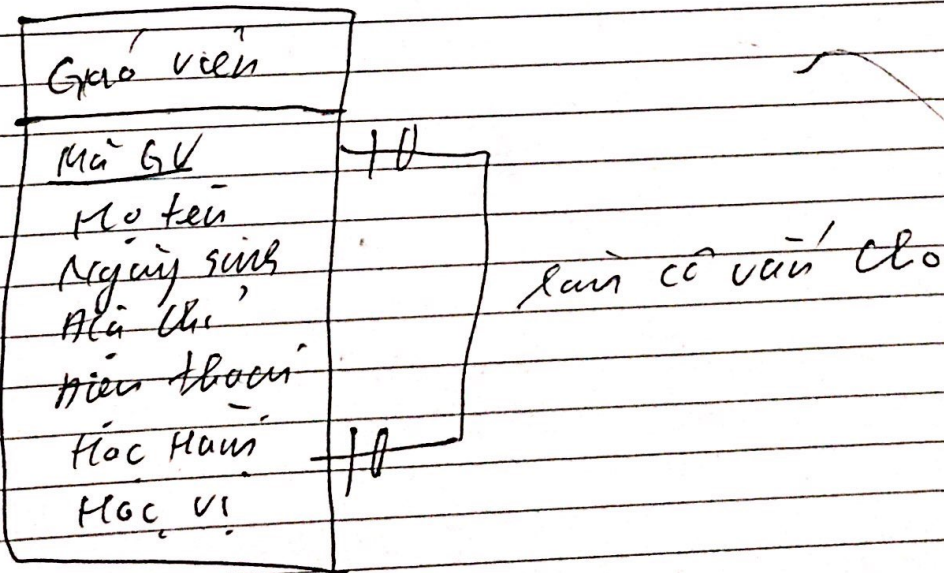 Giáo viên
Mã GV
Họ tên
Ngày sinh
Địa chỉ
Điện thoại
Học Hàm
Học vị
làm cố vấn cho